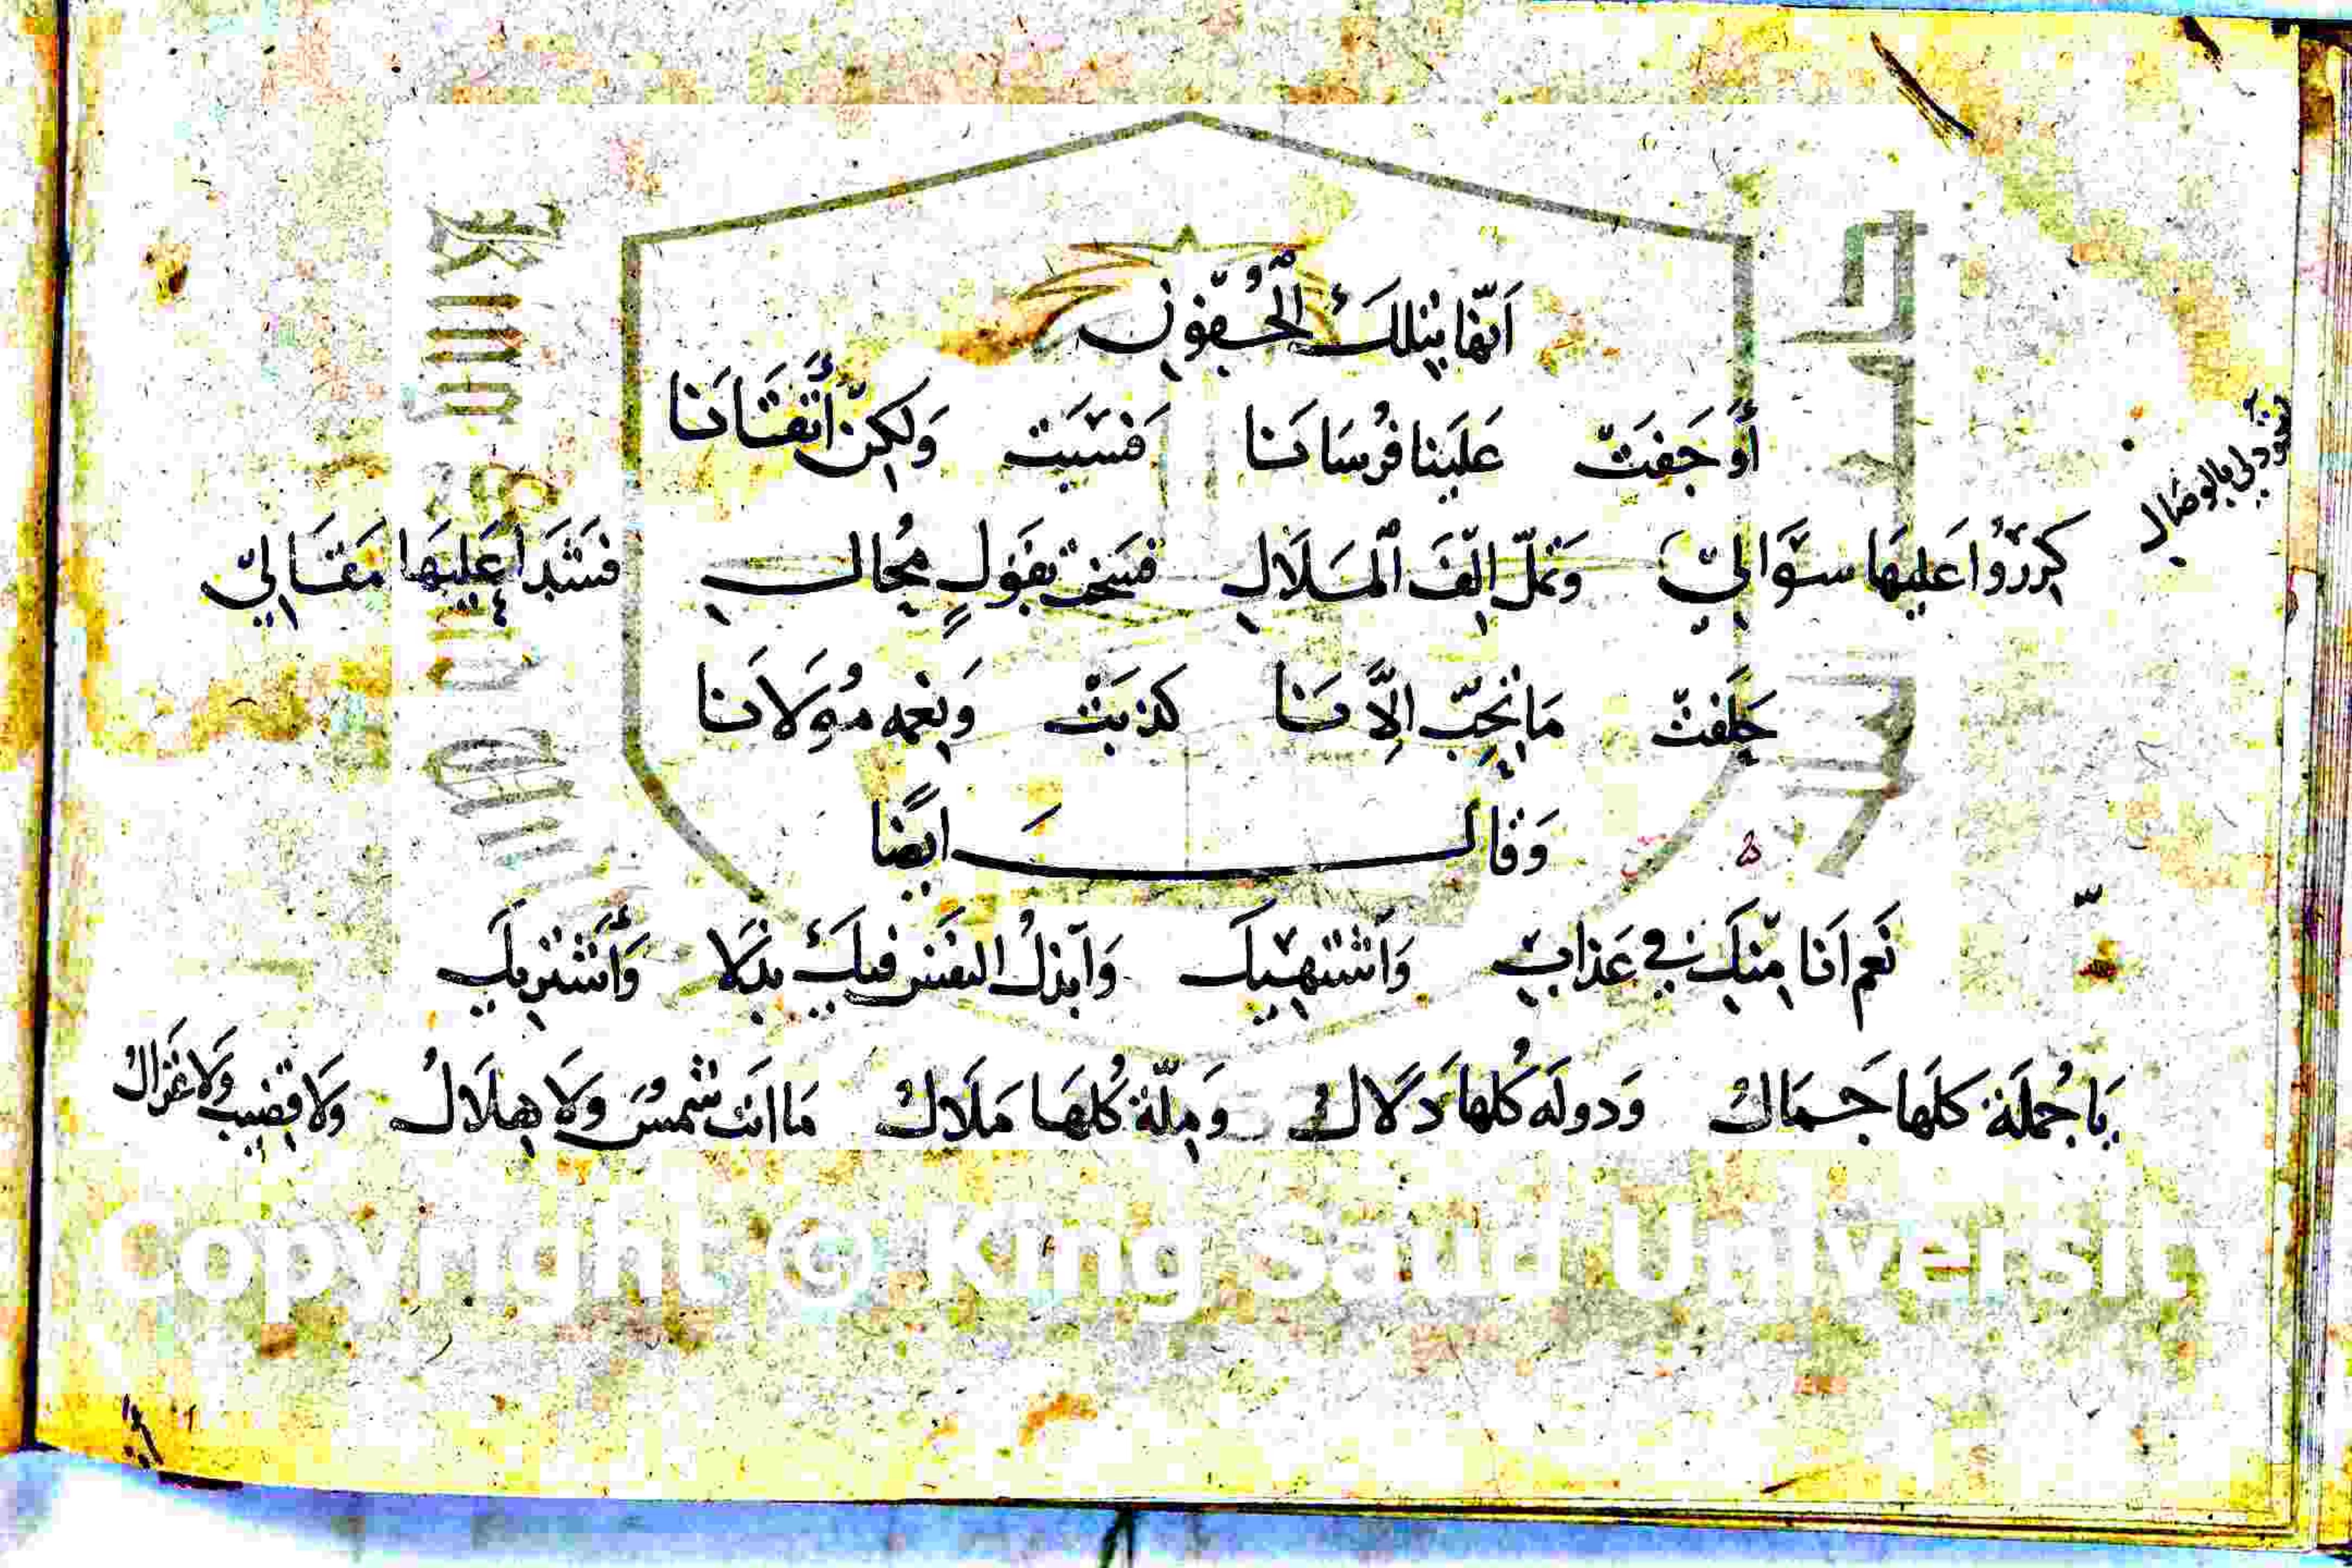 اَنّها بتِلكَ الجُفُونِ
أَوجَفَتْ عَلَينا فُرسَانَنا فسَبَت وَلكِنّ أَتْقَانَا
تَجُود لي بالوصَال
كرِرُوا عَليهَا سؤَاليْ وَتملّ اِلفَ المَلَالِ فسَخَت بقَولٍ مُحال فسَتَبَدا عَليهَا مَقَاليْ
حَلِفتْ مَا نحِبّ اِلَّا نَا كَذبَتْ وَنِعمه مُولَانَا
وَقال ايضًا
نَعم اَنا مِنكَ في عَذابٍ وَاَشتهيكَ وَاَبذلُ النفسَ فيكَ بذلا وَأَشتريكَ
يَا جُملَة كلَها جَمَالْ وَدولَه كُلها دَلَالْ وَمِلّة كُلهَا مَلَالْ مَا انَت شمسُ وَلَا هِلَالُ وَلا قضِيب وَلا غزَالُ
King Saud University
Copyright © King Saud University